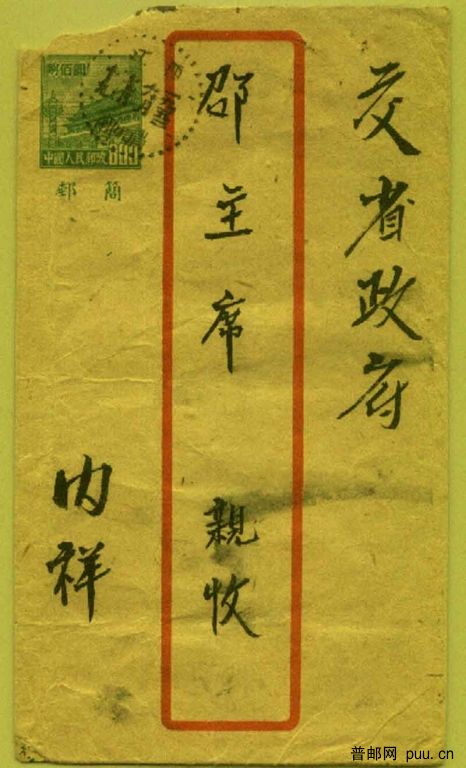 交省政府
邵主席 親收
内祥
捌佰圓
中國人民郵政 800
郵簡
普邮网 puu.cn